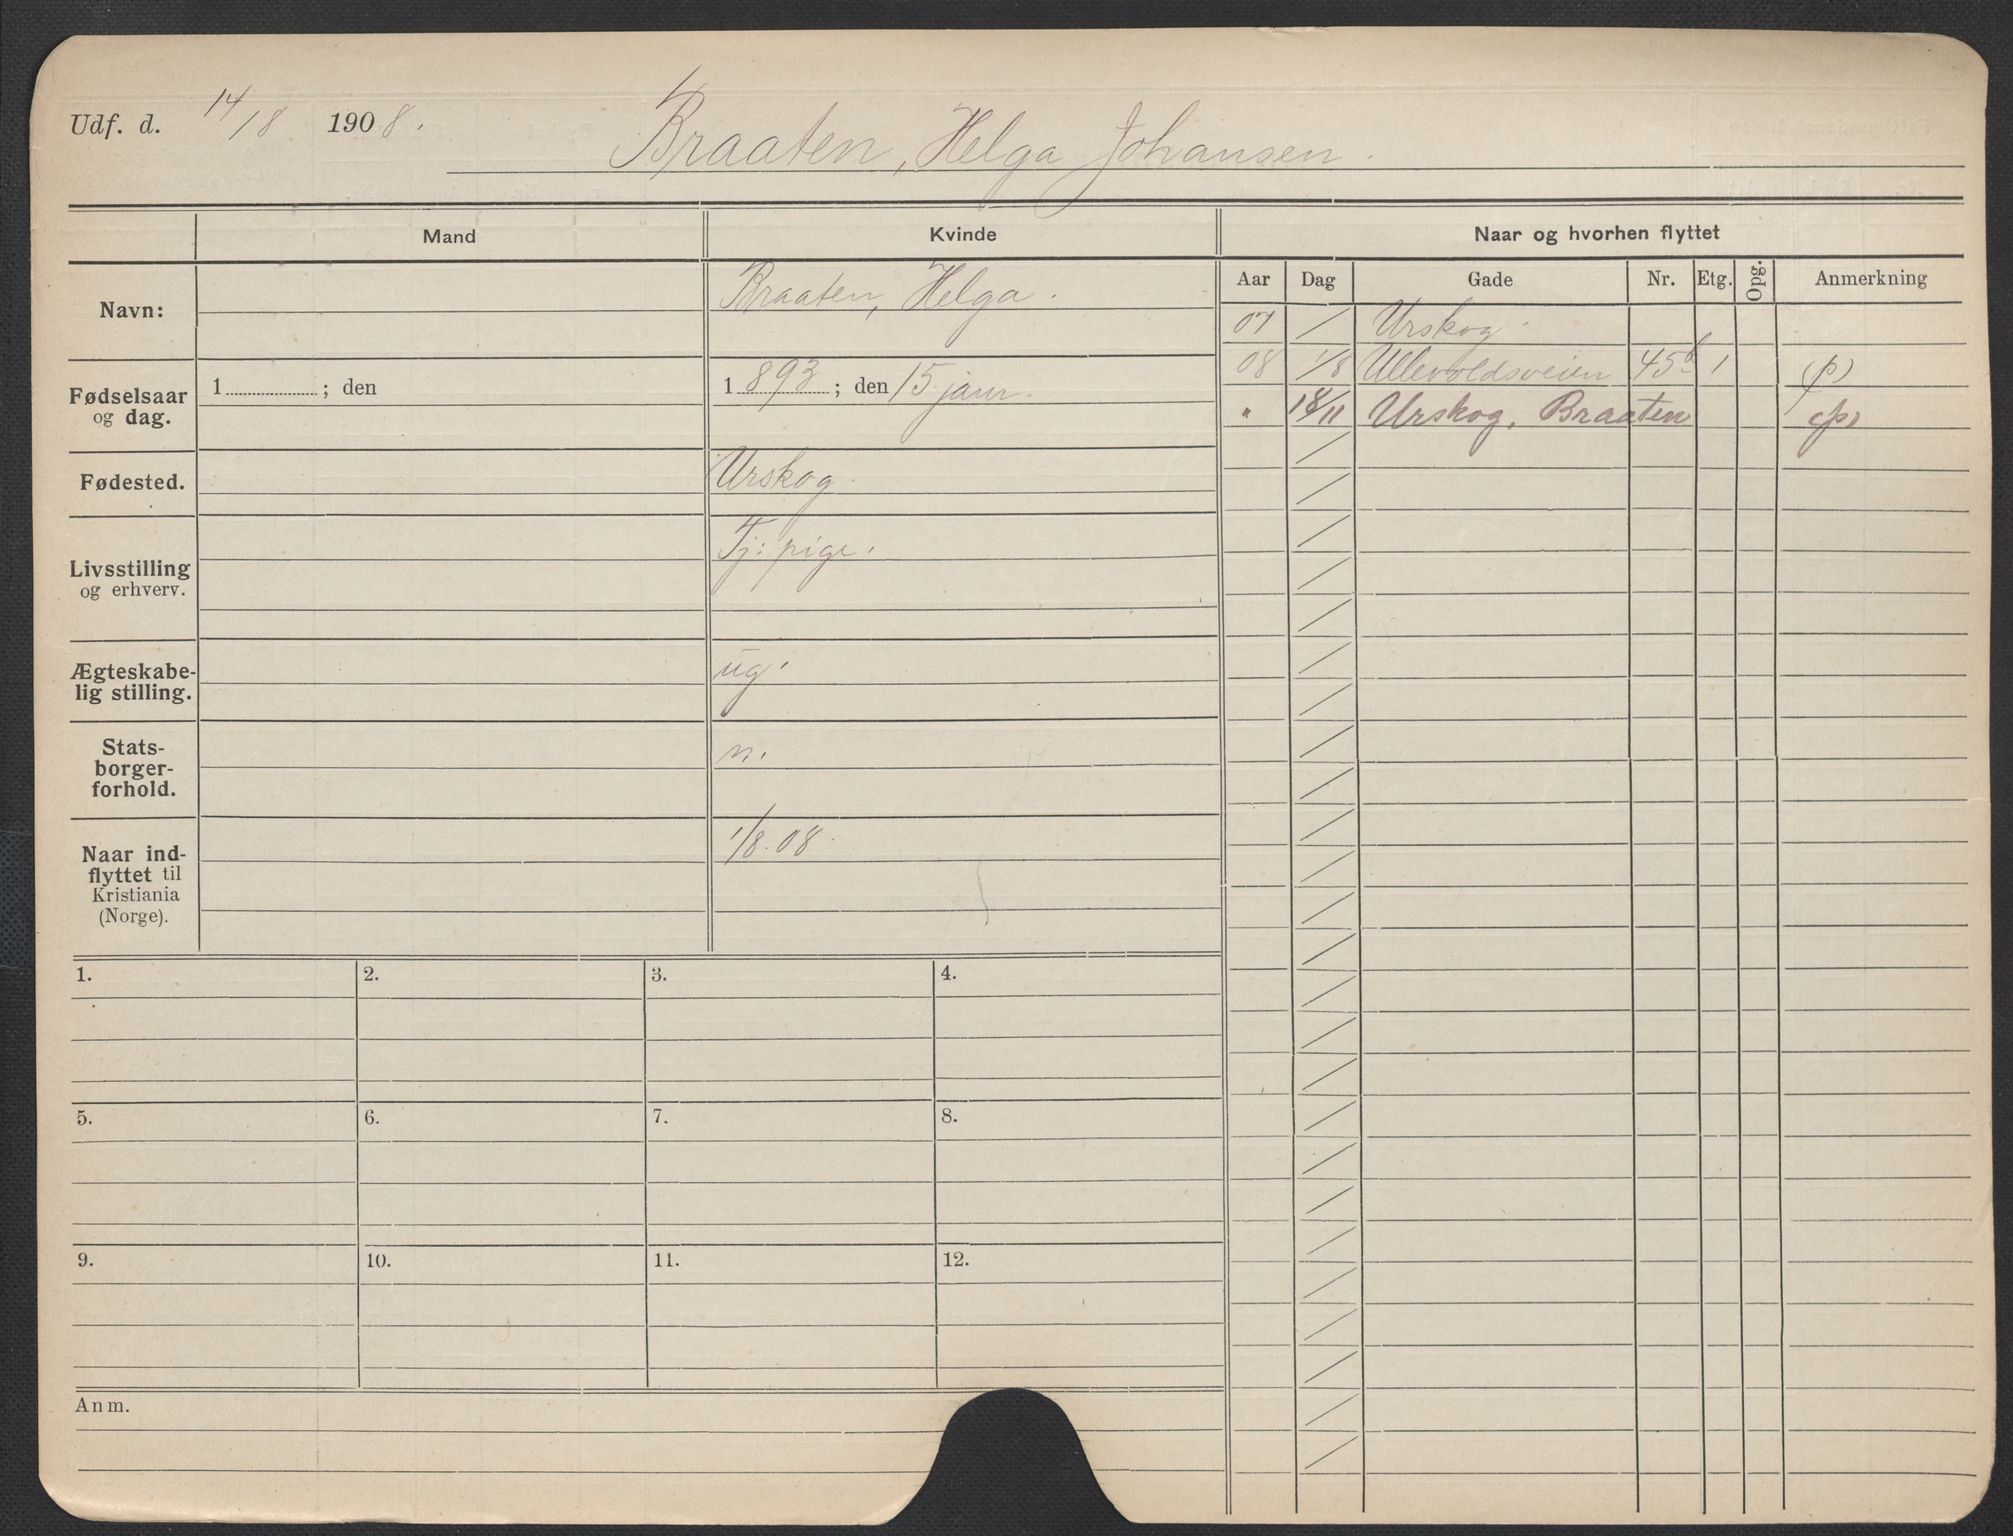 Udf. d. 14/8 1908.
Braaten, Helga Johansen.
Mand Kvinde Naar og hvorhen flyttet
Aar Dag Gade Nr. Etg. Opg. Anmerkning
Navn: Braaten, Helga.
07 / Urskog
08 1/8 Ullevoldsveien 45b 1 (p)
" 18/11 Urskog, Braaten (p)
Fødselsaar
og dag.
1 ; den
1893; den 15. janr.
Fødested. Urskog
Livsstilling
og erhverv.
Tj: pige.
Ægteskabe-
lig stilling.
ug.
Stats-
borger-
forhold.
n.
Naar ind-
flyttet til
Kristiania
(Norge).
1/8. 08
1. 2. 3. 4.
5. 6. 7. 8.
9. 10. 11. 12.
Anm.